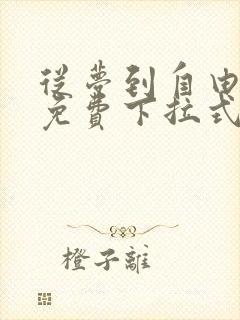 從夢到自由
免費下拉式
橙子離